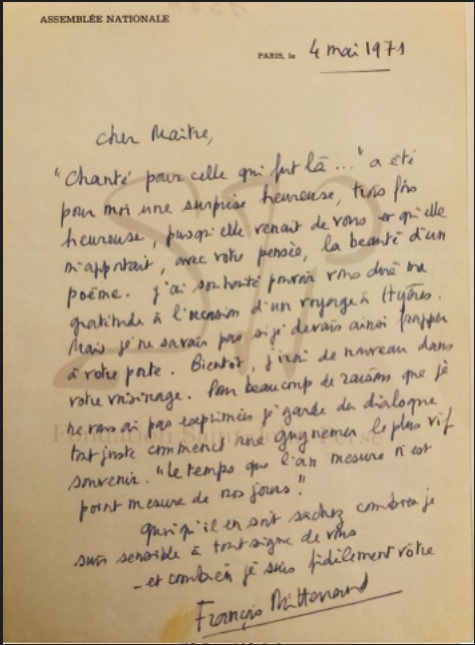 ASSEMBLÉE NATIONALE
PARIS, le 4 mai 1971
Cher Maître,
"Chanté par celle qui fut là ..." a été
pour moi une surprise heureuse, trois fois
heureuse, puisqu'elle venait de vous et qu'elle
m'apportait, avec votre pensée, la beauté d'un
poème. J'ai souhaité pouvoir vous dire ma
gratitude à l'occasion d'un voyage à Hyères.
Mais je ne savais pas si je devais ainsi frapper
à votre porte. Bientôt, j'irai de nouveau dans
votre voisinage. Pour beaucoup de raisons que je
ne vous ai pas exprimées je garde du dialogue
tout juste commencé rue Guynemer le plus vif
souvenir. "Le temps que l'an mesure n'est
point mesure de nos jours."
Quoi qu'il en soit sachez combien je
suis sensible à tout signe de vous
- et combien je suis fidèlement vôtre
François Mitterrand
SJP
Fondation Saint-John Perse